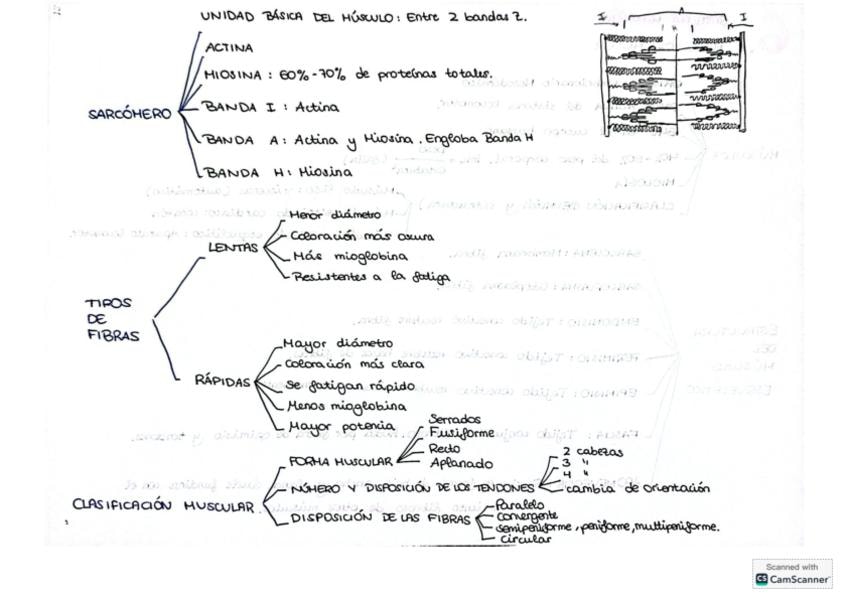 UNIDAD BÁSICA DEL MÚSCULO: Entre 2 bandas Z.
ACTINA
MIOSINA: 60%-70% de proteínas totales.
SARCÓMERO
BANDA I: Actina
BANDA A: Actina y Miosina. Engloba Banda H
BANDA H: Miosina
I A I
TIPOS DE FIBRAS
LENTAS
Menor diámetro
Coloración más oscura
Más mioglobina
Resistentes a la fatiga
RÁPIDAS
Mayor diámetro
Coloración más clara
Se fatigan rápido
Menos mioglobina
Mayor potencia
CLASIFICACIÓN MUSCULAR
FORMA MUSCULAR
Serrados
Fusiforme
Recto
Aplanado
NÚMERO Y DISPOSICIÓN DE LOS TENDONES
2 cabezas
3 "
4 "
cambia de orientación
DISPOSICIÓN DE LAS FIBRAS
Paralelo
convergente
semipeniforme, peniforme, multipeniforme.
circular
Scanned with
CS CamScanner